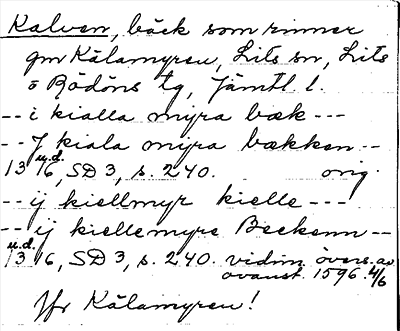 Kalven, bäck som rinner
gm Kälamyren, Lits sn, Lits
o Rödöns tg, Jämtl. l.
-- i kialla myra bæk ---
-- J kiala myra bækken --
n.d.
1316, SD 3, s. 240. orig.
-- ij kiellmyr kielle ---
-- ij kiellemyre Beckenn --
n.d.
1316, SD 3, s. 240. vidim. övers. av
ovanst. 1596 4/6
Jfr Kälamyren!